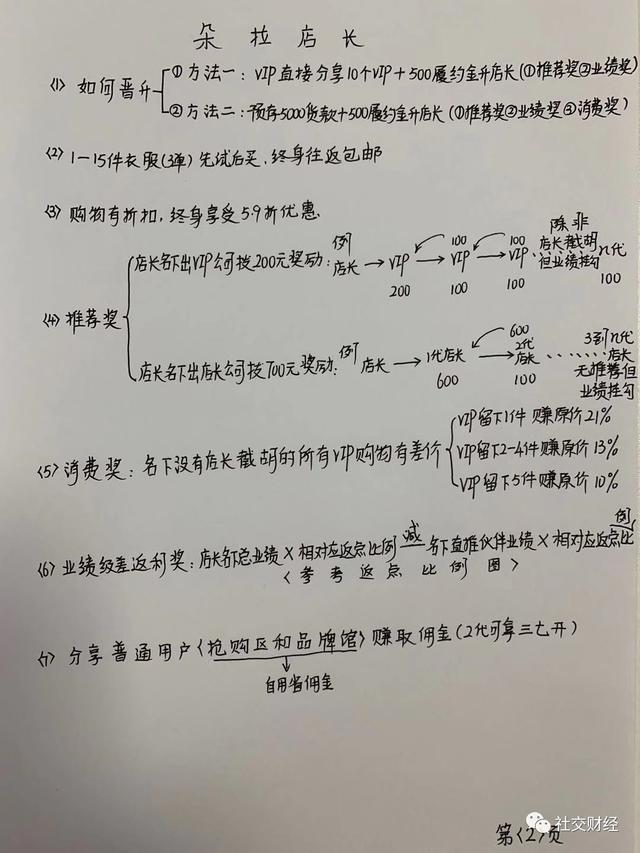 朵拉店长
<1> 如何晋升
①方法一：VIP直接分享10个VIP+500履约金升店长(①推荐奖②业绩奖)
②方法二：预存5000货款+500履约金升店长(①推荐奖②业绩奖③消费奖)
<2> 1-15件衣服(3单)先试后买，终身往返包邮
<3> 购物有折扣，终身享受5.9折优惠
<4> 推荐奖
店长名下出VIP公司按200元奖励：例 店长→VIP→VIP→VIP……n代
100 100
200 100 100 100
除非店长截胡但业绩挂勾
店长名下出店长公司按700元奖励：例 店长→1代店长→2代店长……3到n代店长
600
600 100
无推荐但业绩挂勾
<5> 消费奖：名下没有店长截胡的所有VIP购物有差价
VIP留下1件赚原价21%
VIP留下2-4件赚原价13%
VIP留下5件赚原价10%
<6> 业绩级差返利奖：店长名下总业绩×相对应返点比例 减 名下直推伙伴业绩×相对应返点比例
<参考返点比例图>
<7> 分享普通用户<抢购区和品牌馆>赚取佣金(2代可拿三七开)
自用省佣金
第<2>页
社交财经